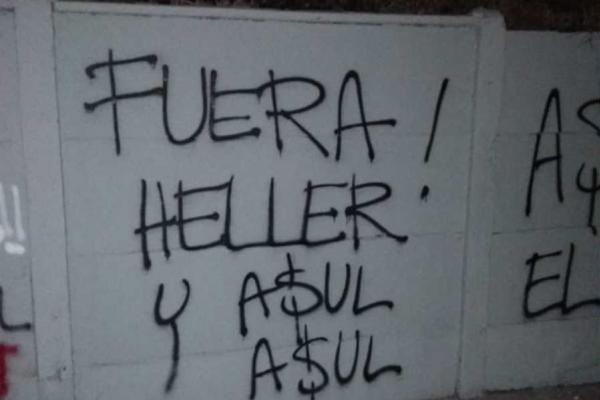 FUERA!
HELLER
Y A$UL
A$UL
EL